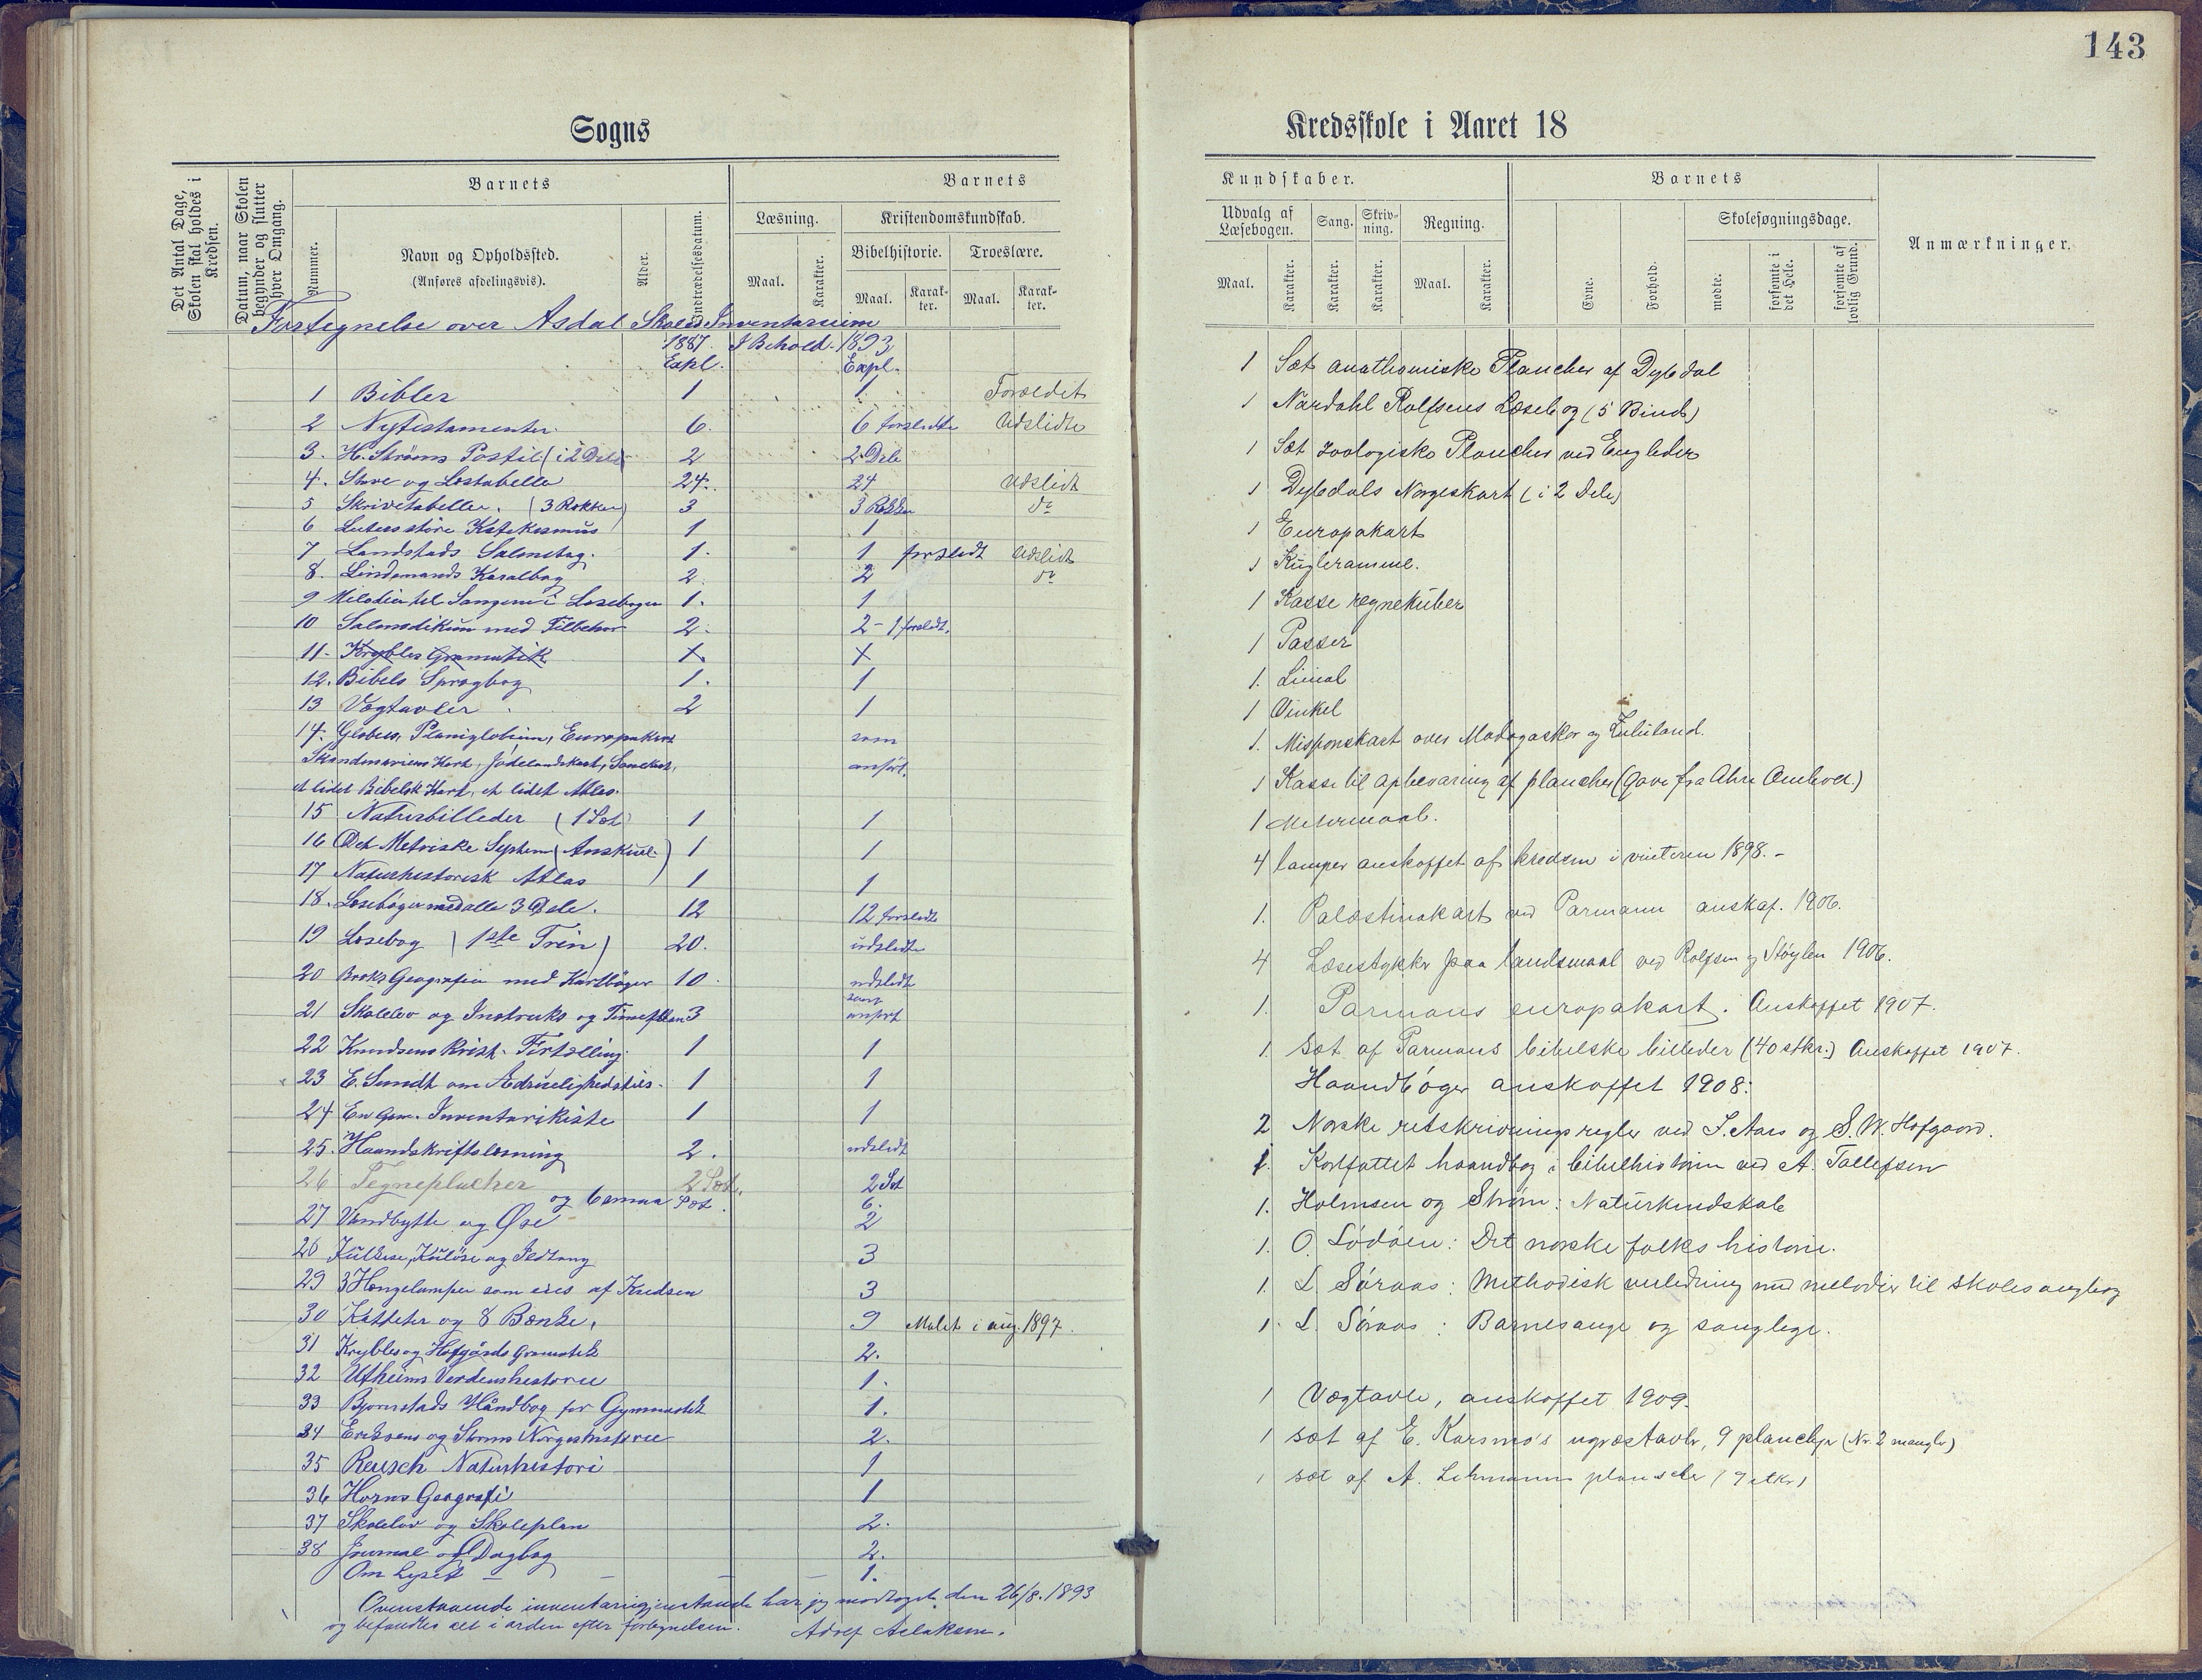 143
Sogns
Kredsskole i Aaret 18
Det Antal Dage, Skolen skal holdes i Kredsen.
Datum, naar Skolen begynder og slutter hver Omgang.
Barnets
Nummer.
Navn og Opholdssted.
(Anføres afdelingsvis).
Alder.
Indtrædelsesdatum.
Barnets
Læsning.
Maal.
Karakter.
Kristendomskundskab.
Bibelhistorie.
Troeslære.
Maal.
Karakter.
Maal.
Karakter.
Fortegnelse over Asdal Skoles Inventarium
1887. I Behold. 1893
Expl. Expl.
1 Bibler 1 1 Foreldet
2 Nytestamenter 6. 6 forslidte Udslidte
3. H. Strøms Postil (i 2 Dele) 2 2 Dele
4. Stave og Læsetabeller 24. 24 Udslidt
5 Skrivetabeller. (3 Rækker) 3 3 Rækker do
6 Luters store Katekismus 1 1
7 Landstads Salmebog. 1. 1 forslidt Udslidt
8. Lindemands Koralbog 2. 2 do
9 Melodier til Sangene i Læsebogen 1. 1
10 Salmodikon med Tilbehør 2. 2 - 1 forslidt.
11- Knybles Gramatik 1. 1
12. Bibels Sprogbog 1. 1
13 Vægtavler 2 1
14. Globus, Planiglobium, Europakart som
Skandinaviens Kart, Jødelandskart, Samekart, anført.
et lidet Bibelsk Kart, et lidet Atlas.
15 Naturbilleder (1 Sæt) 1 1
16 Det Metriske System (Anskuel.) 1 1
17 Naturhistorisk Atlas 1 1
18. Læsebøger med alle 3 Dele. 12 12 forslidt
19 Læsebog (1ste Trin) 20. udslidte
20 Broks Geografier med Kartbøger 10 udslidt
21 Skolelov og Instruks og Timeplan 3 som anført
22 Knudsens Krist. Fortælling. 1 1
23 E. Sundt om Ædrueligheds 1 1
24 En Gm. Inventarikiste 1 1
25. Haandskriftslæsning 2. udslidt
26 Tegneplacher 2 Sæt. 2 Sæt
og 6 smaa Sæt 6.
27 Vandbytte og Øse 2
28 Kulkasse, Kuløse og Ildtang 3
29 3 Hængelamper som eies af Kredsen 3
30 Katheter og 8 Bænke. 9 Malet i aug. 1897.
31 Knybles og Hofgårds Gramatik 2.
32 Utheims Verdenshistorie 1.
33 Bjørnstads Håndbog for Gymnastik 1.
34 Eriksens og Strøms Norgeshistorie 2.
35 Reusch Naturhistori 1
36 Horns Geografi 1
37 Skolelov og Skoleplan 2.
38 Journal og Dagbog 2.
Om Lyset 1.
Ovenstaaende inventarigjenstande har jeg modtaget den 26/8. 1893
og befandtes alt i orden efter fortegnelsen. Adolf Aslaksen.
Kundskaber.
Udvalg af Læsebogen.
Sang.
Skrivning.
Regning.
Maal.
Karakter.
Karakter.
Karakter.
Maal.
Karakter.
Barnets
Evne.
Forhold.
Skolesøgningsdage.
mødte.
forsømte i det Hele.
forsømte af lovlig Grund.
Anmærkninger.
1 Sæt anathomiske Plancher af Dybdal
1 Nordahl Rolfsens Læsebog (5 Bind)
1 Sæt zoologiske Plancher ved Engleder
1 Dybdals Norgeskart (i 2 Dele)
1 Europakart
1 Kugleramme.
1 Kasse regnekuber
1 Passer
1. Lineal
1 Vinkel
1. Missionskart over Madagaskar og Zululand.
1 Kasse til opbevaring af plancher (Gave fra Ahre Omholt)
1 Metermaal.
4 lamper anskaffet af kredsen i vinteren 1898.-
1. Palæstinakart ved Parmann anskaf. 1906.
4 Læsestykker paa landsmaal ved Rolfsen og Støylen 1906.
1. Parmans europakart. Anskaffet 1907.
1. Sæt af Parmans bibelske billeder (40 stkr.) Anskaffet 1907.
Haandbøger anskaffet 1908:
2 Norske retskrivningsregler ved J. Aars og S. W. Hofgaard.
1. Kortfattet haandbog i bibelhistorien ved A. Tallefsen
1. Holmsen og Strøm: Naturkundskab
1. O. Lødøen: Det norske folks historie.
1. L. Søraas: Methodisk veiledning med melodier til skolesangbog
1. L. Søraas: Barnesange og sanglege.
1 Vægtavle, anskaffet 1909.
1 sæt af E. Korsmo's ugræstavler, 9 plancher (Nr. 2 mangler)
1 sæt af A. Lehmanns planscher (9 stkr)